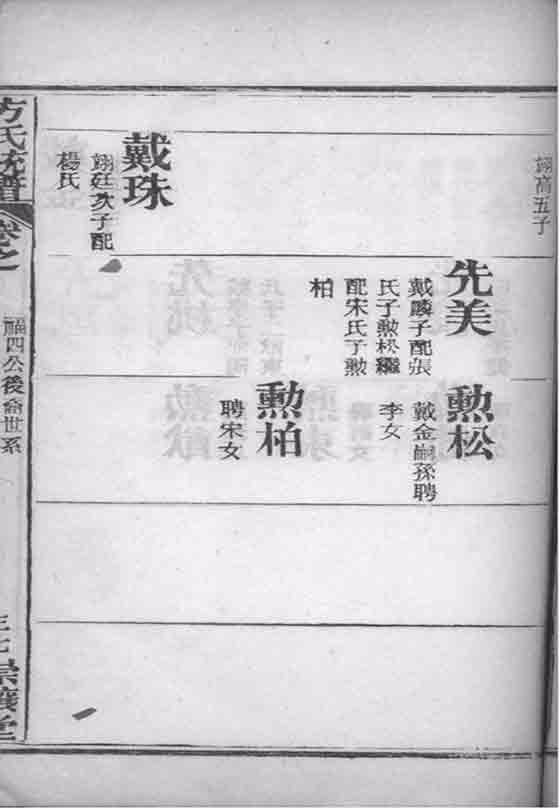 翊高五子
先美
戴麟子配張
氏子勲松繼
配宋氏子勲
柏
勲松
戴金嗣孫聘
李女
勲柏
聘宋女
戴珠
翊廷次子配
楊氏
方氏統譜
卷之
福四公後裔世系